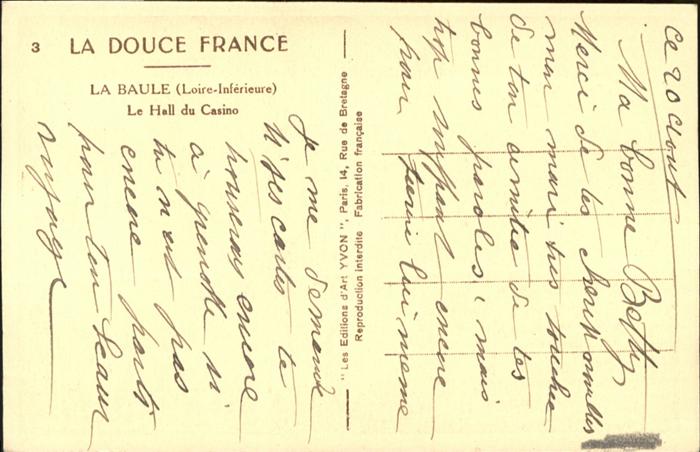 3 LA DOUCE FRANCE
LA BAULE (Loire-Inférieure)
Le Hall du Casino
"Les Editions d'Art YVON", Paris, 14, Rue de Bretagne
Reproduction interdite Fabrication française
ce 20 Aout
Ma bonne Betty,
Merci de tes nouvelles
mon mari très touché
de ton amitié de tes
bonnes paroles, mais
trop encore
pour lui meme
Je me demande
si cartes te
trouveras encore
à si
tu n'es pas
encore partie
pour ton beau
voyage